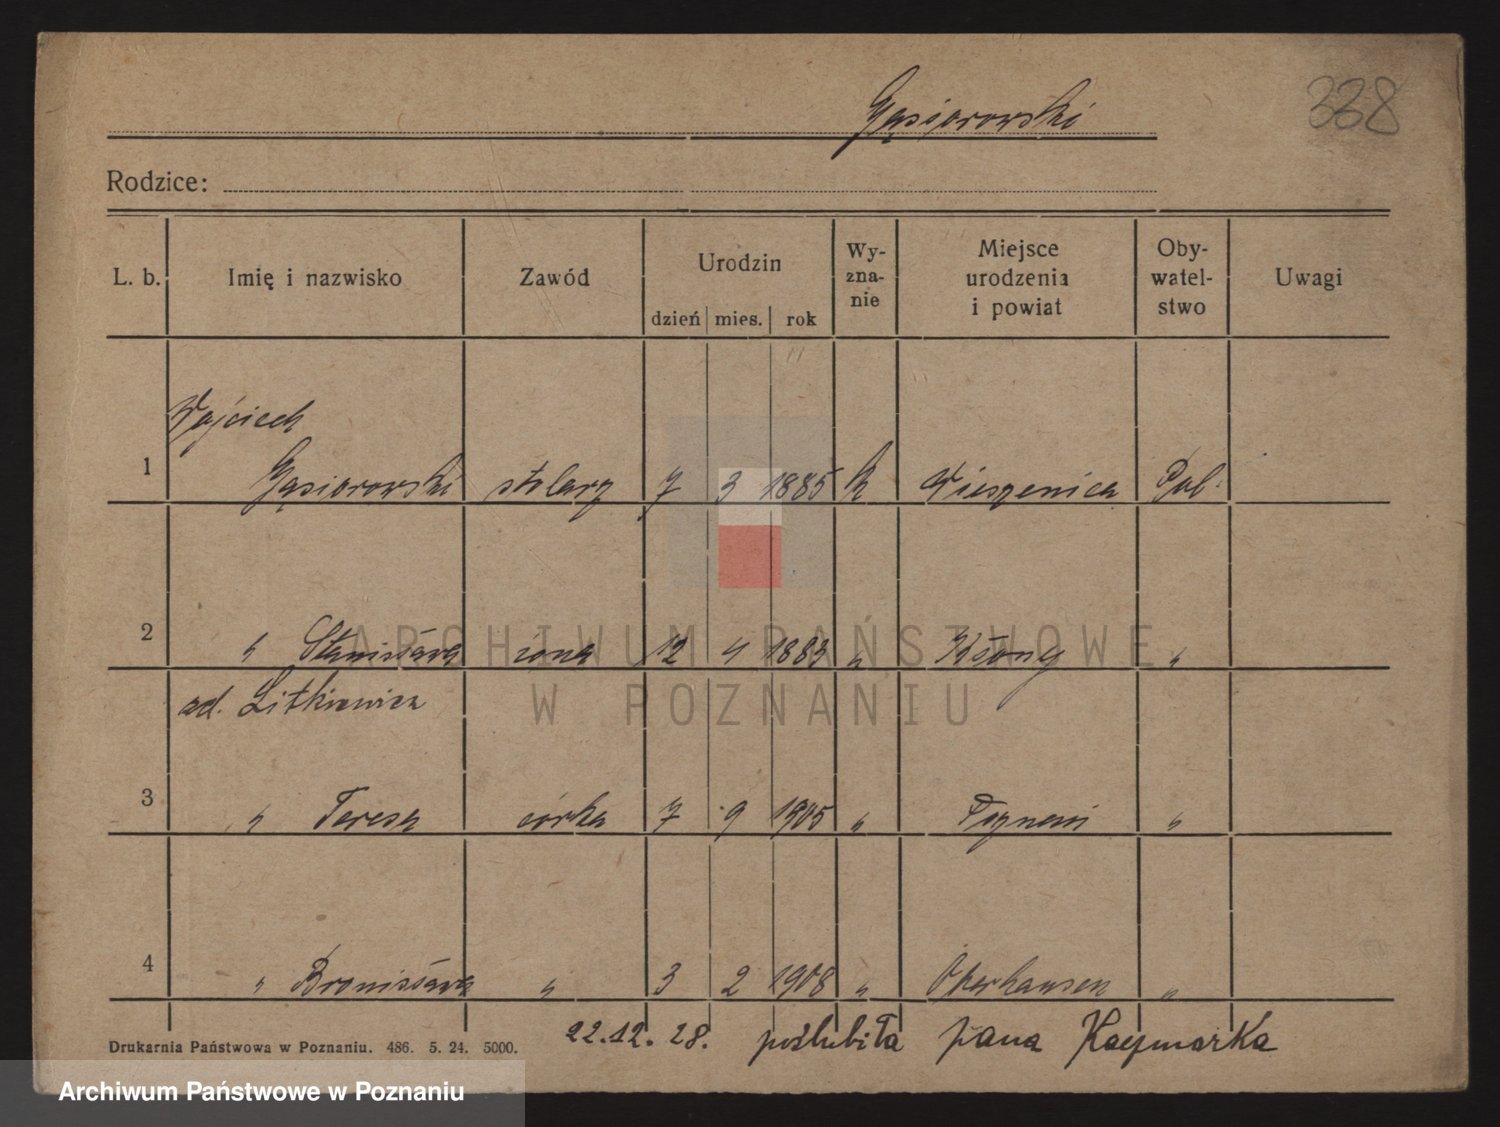 Gąsiorowski
338
Rodzice:
L. b. Imię i nazwisko Zawód Urodzin dzień mies. rok Wy-zna-nie Miejsce urodzenia i powiat Oby-watel-stwo Uwagi
Wojciech
1 Gąsiorowski stolarz 7 3 1885 k Wieszenica Pol.
2 " Stanisława żona 12 4 1883 " Książ "
ad. Litkiewicz
3 " Teresa córka 7 9 1905 " Poznań "
4 " Bronisława " 3 2 1908 " Oberhausen "
22.12.28. poślubiła pana Kaczmarka
Drukarnia Państwowa w Poznaniu. 486. 5. 24. 5000.
ARCHIWUM PAŃSTWOWE
W POZNANIU
Archiwum Państwowe w Poznaniu